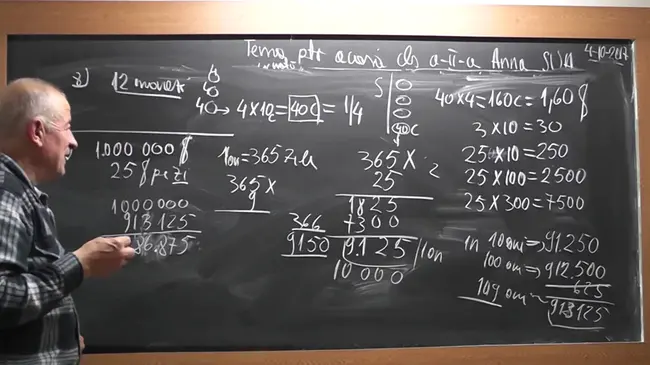 Tema ptr acasă cls a-II-a Anna SUA
4-10-2017
3) 12 monede
40
40
40 → 4 × 10 = 40C = 1/4
S
40C
40 × 4 = 160C = 1,60 $
3 × 10 = 30
25 × 10 = 250
25 × 100 = 2500
25 × 300 = 7500
1.000 000 $
25 $ pe zi
1000 000
913125
86.875
1an = 365 zile
365 ×
9
365 ×
25
1825
7300
9.125 1an
10 000
366
9150
în 10 ani => 91.250
100 ani => 912.500
625
913125